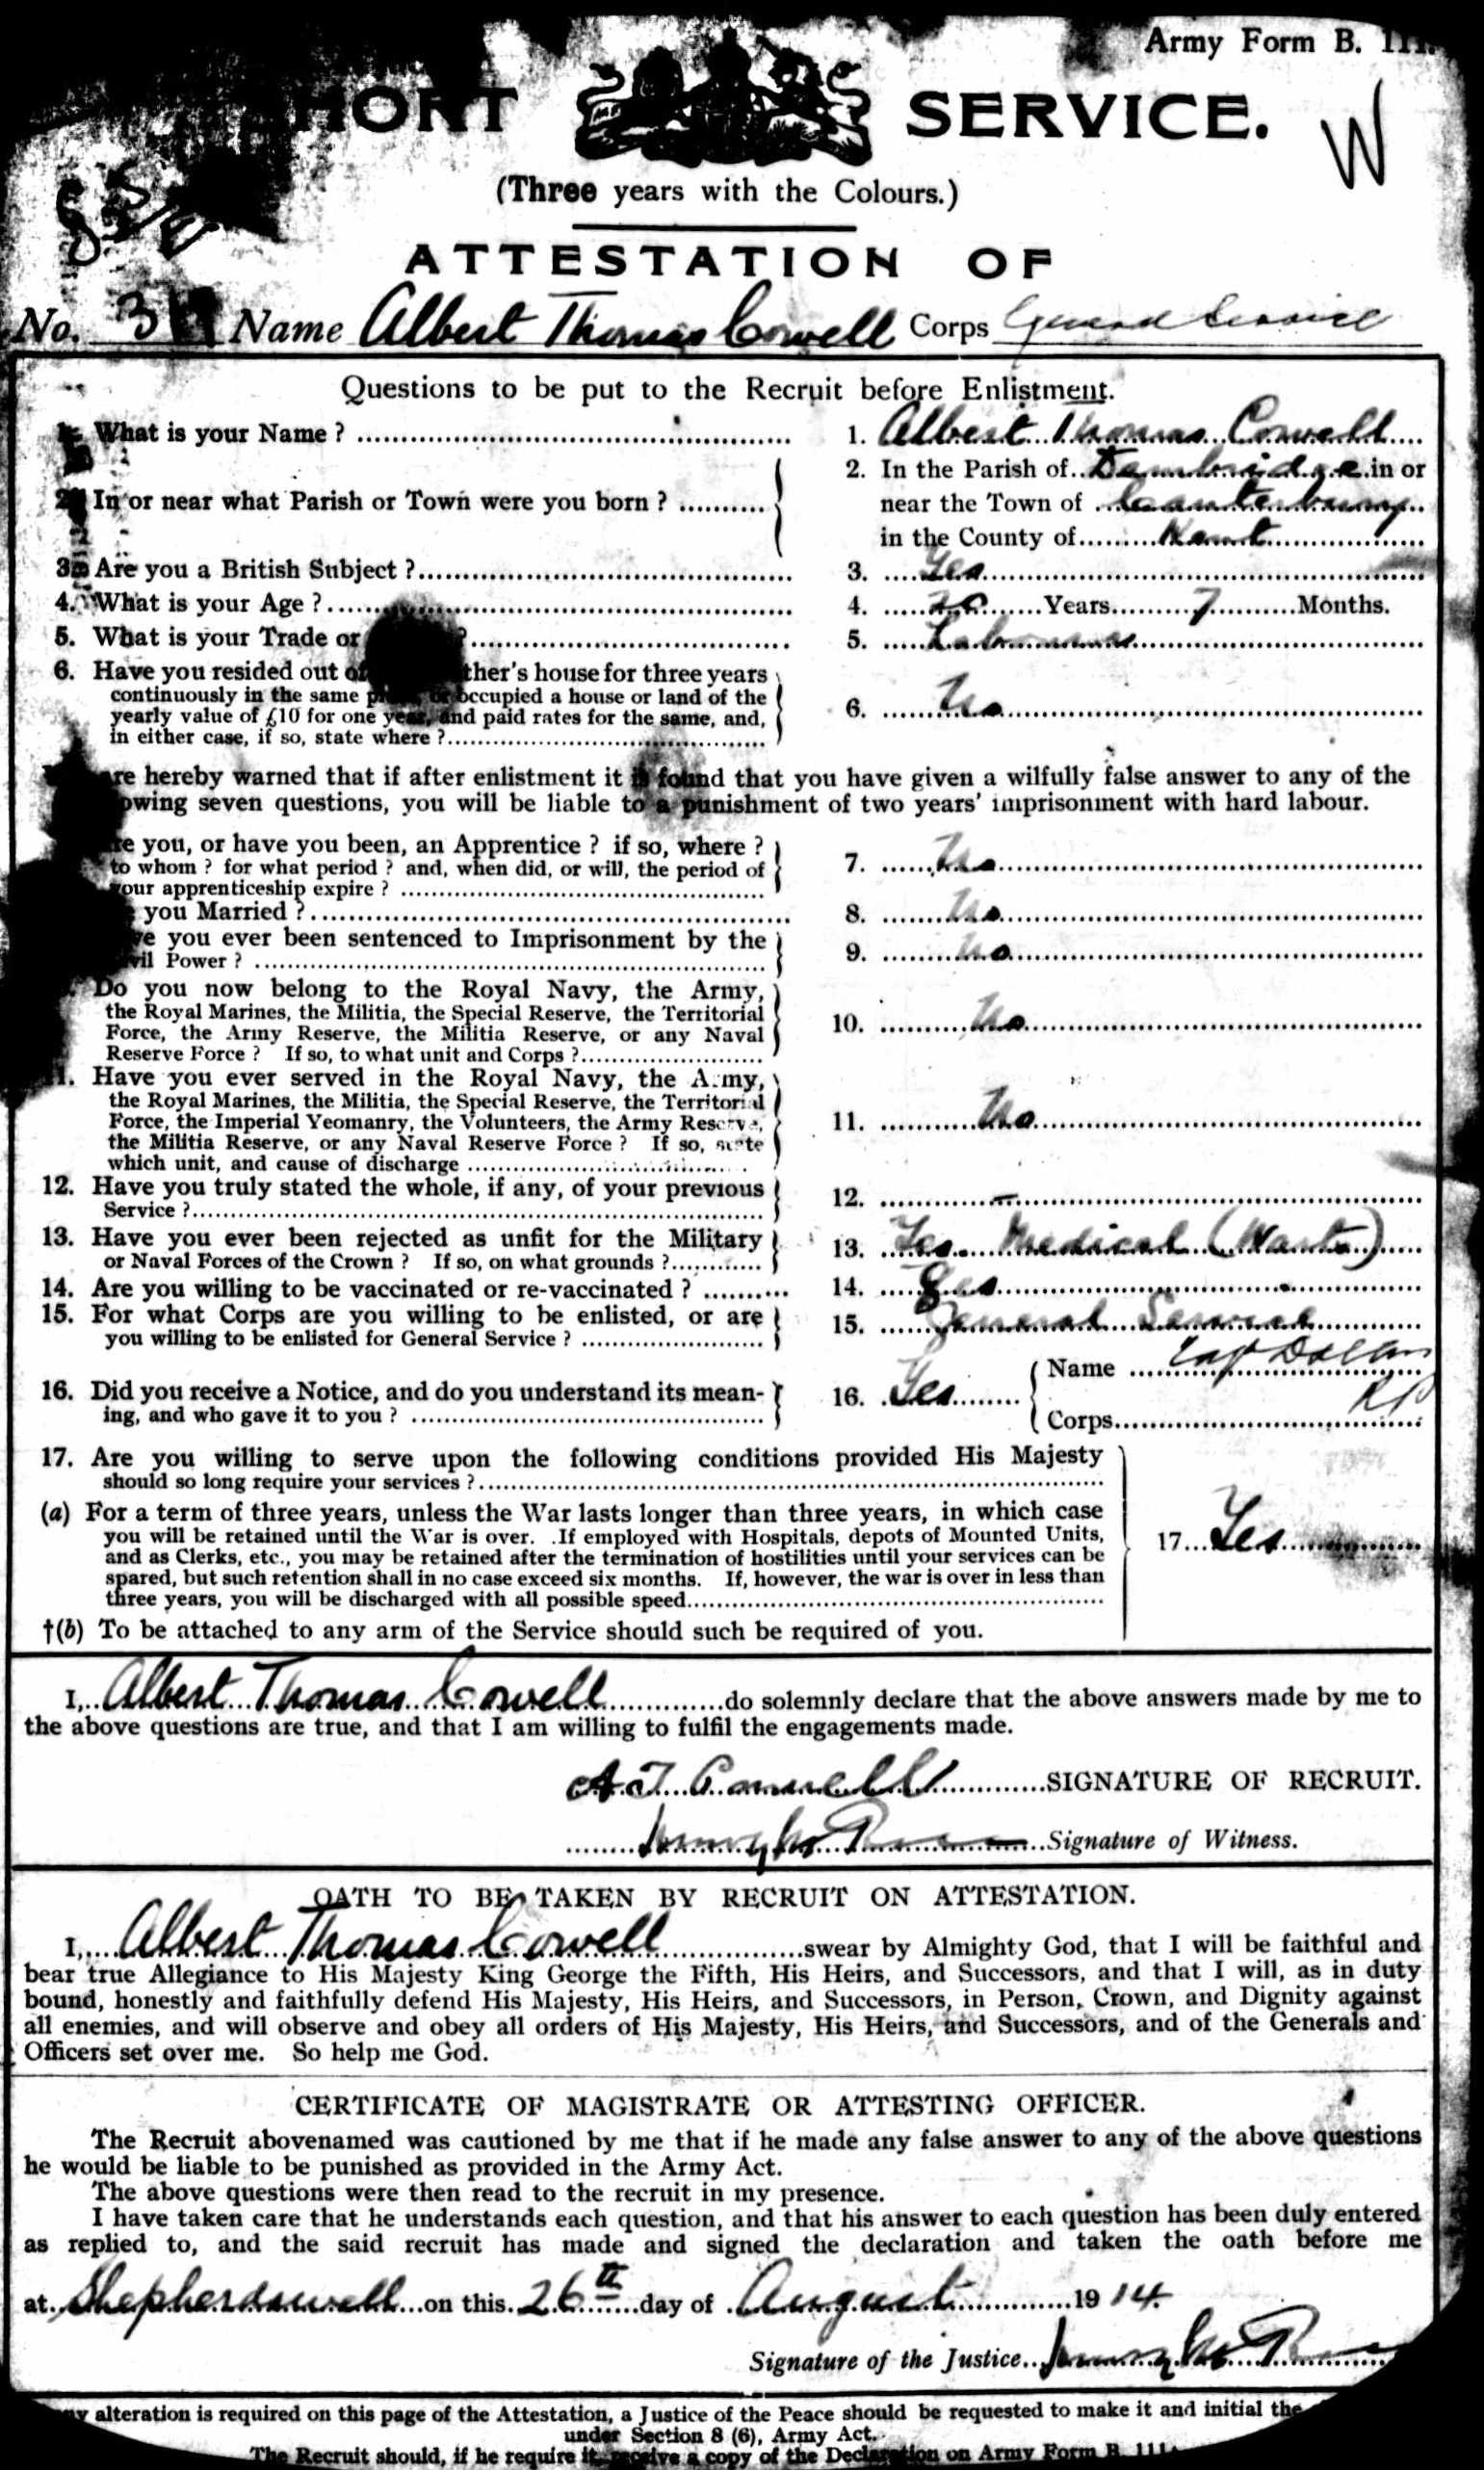 Army Form B. 111.
SHORT SERVICE.
W
(Three years with the Colours.)
ATTESTATION OF
No. Name Albert Thomas Cowell Corps General Service
Questions to be put to the Recruit before Enlistment.
1. What is your Name ? 1. Albert Thomas Cowell
2. In the Parish of in or
2. In or near what Parish or Town were you born ? near the Town of Canterbury
in the County of Kent
3. Are you a British Subject ? 3. Yes
4. What is your Age ? 4. 20 Years 7 Months.
5. What is your Trade or ? 5. Labourer
6. Have you resided out of ther's house for three years
continuously in the same place or occupied a house or land of the
yearly value of £10 for one year, and paid rates for the same, and, 6. No
in either case, if so, state where ?
are hereby warned that if after enlistment it is found that you have given a wilfully false answer to any of the
owing seven questions, you will be liable to a punishment of two years' imprisonment with hard labour.
re you, or have you been, an Apprentice ? if so, where ?
to whom ? for what period ? and, when did, or will, the period of 7. No
your apprenticeship expire ?
you Married ? 8. No
ve you ever been sentenced to Imprisonment by the 9. No
vil Power ?
Do you now belong to the Royal Navy, the Army,
the Royal Marines, the Militia, the Special Reserve, the Territorial
Force, the Army Reserve, the Militia Reserve, or any Naval 10. No
Reserve Force ? If so, to what unit and Corps ?
11. Have you ever served in the Royal Navy, the Army,
the Royal Marines, the Militia, the Special Reserve, the Territorial
Force, the Imperial Yeomanry, the Volunteers, the Army Reserve, 11. No
the Militia Reserve, or any Naval Reserve Force ? If so, state
which unit, and cause of discharge
12. Have you truly stated the whole, if any, of your previous 12. –
Service ?
13. Have you ever been rejected as unfit for the Military 13. Yes. Medical
or Naval Forces of the Crown ? If so, on what grounds ?
14. Are you willing to be vaccinated or re-vaccinated ? 14. Yes
15. For what Corps are you willing to be enlisted, or are 15. General Service
you willing to be enlisted for General Service ?
Name
16. Did you receive a Notice, and do you understand its mean- 16. Yes
ing, and who gave it to you ? Corps
17. Are you willing to serve upon the following conditions provided His Majesty
should so long require your services ?
(a) For a term of three years, unless the War lasts longer than three years, in which case
you will be retained until the War is over. If employed with Hospitals, depots of Mounted Units, 17. Yes
and as Clerks, etc., you may be retained after the termination of hostilities until your services can be
spared, but such retention shall in no case exceed six months. If, however, the war is over in less than
three years, you will be discharged with all possible speed.
†(b) To be attached to any arm of the Service should such be required of you.
I, Albert Thomas Cowell do solemnly declare that the above answers made by me to
the above questions are true, and that I am willing to fulfil the engagements made.
A T Cowell SIGNATURE OF RECRUIT.
Signature of Witness.
OATH TO BE TAKEN BY RECRUIT ON ATTESTATION.
I, Albert Thomas Cowell swear by Almighty God, that I will be faithful and
bear true Allegiance to His Majesty King George the Fifth, His Heirs, and Successors, and that I will, as in duty
bound, honestly and faithfully defend His Majesty, His Heirs, and Successors, in Person, Crown, and Dignity against
all enemies, and will observe and obey all orders of His Majesty, His Heirs, and Successors, and of the Generals and
Officers set over me. So help me God.
CERTIFICATE OF MAGISTRATE OR ATTESTING OFFICER.
The Recruit abovenamed was cautioned by me that if he made any false answer to any of the above questions
he would be liable to be punished as provided in the Army Act.
The above questions were then read to the recruit in my presence.
I have taken care that he understands each question, and that his answer to each question has been duly entered
as replied to, and the said recruit has made and signed the declaration and taken the oath before me
at Shepherdswell on this 26th day of August 1914.
Signature of the Justice
alteration is required on this page of the Attestation, a Justice of the Peace should be requested to make it and initial the
under Section 8 (6), Army Act.
The Recruit should, if he require it, receive a copy of the Declaration on Army Form B. 111